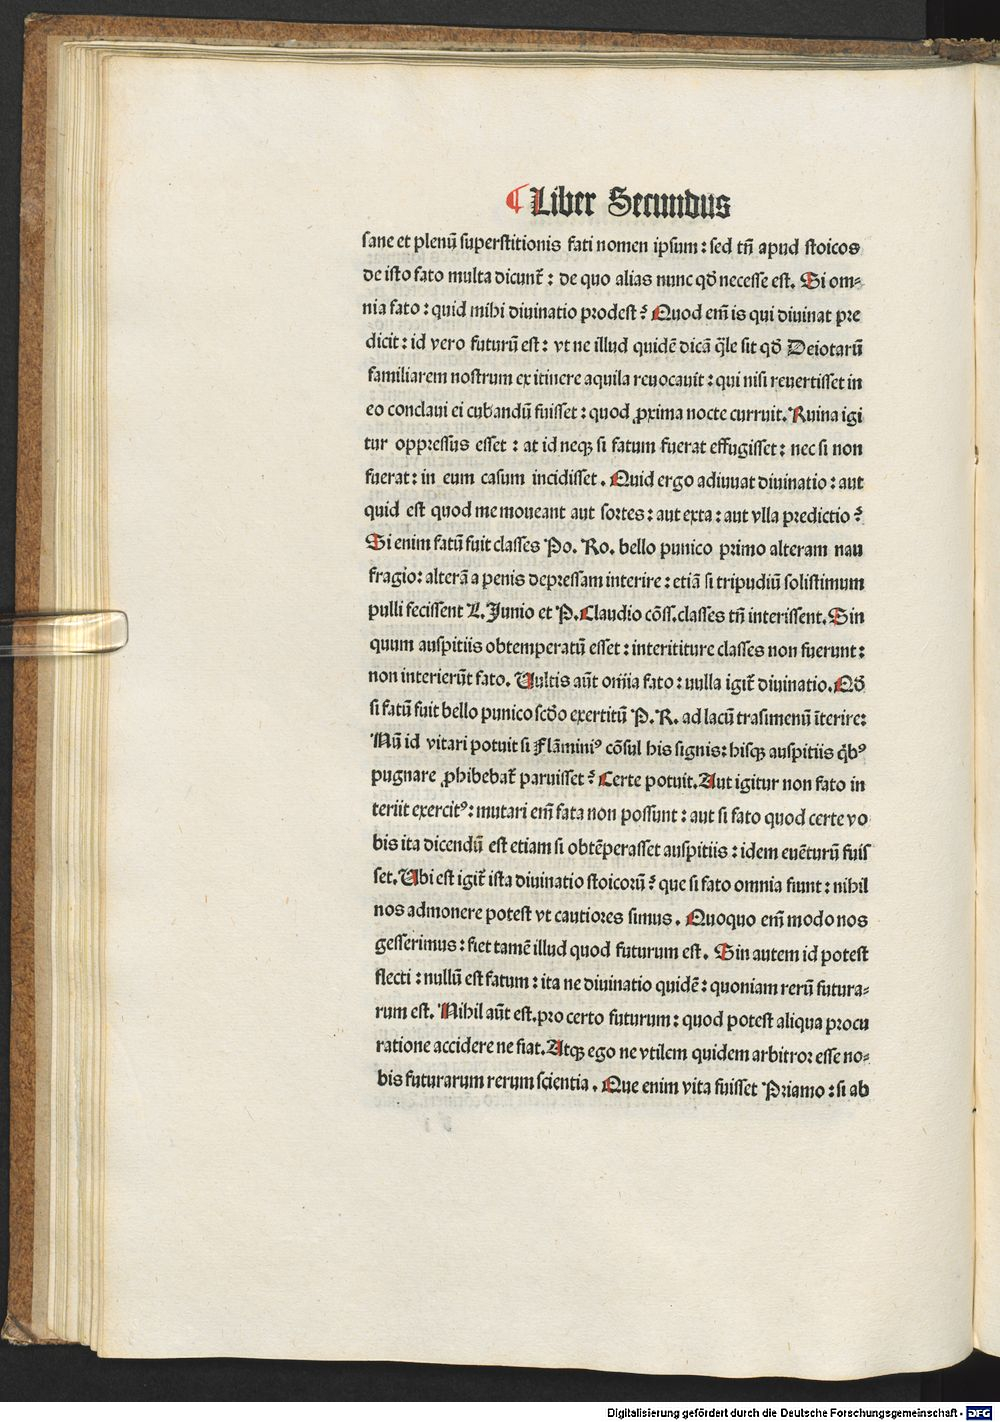 ¶ Liber Secundus
sane et plenū superstitionis fati nomen ipsum : sed tñ apud stoicos
de isto fato multa dicunt̃ : de quo alias nunc qđ necesse est. Si om⸗
nia fato : quid mihi diuinatio prodest ? Quod em̃ is qui diuinat pre
dicit : id vero futurū est : vt ne illud quidē dicā q̃le sit qđ Deiotarū
familiarem nostrum ex itinere aquila reuocauit : qui nisi reuertisset in
eo conclaui ei cubandū fuisset : quod ꝓxima nocte curruit. Ruina igi
tur oppressus esset : at id neqꝫ si fatum fuerat effugisset : nec si non
fuerat : in eum casum incidisset . Quid ergo adiuuat diuinatio : aut
quid est quod me moueant aut sortes : aut exta : aut vlla predictio ?
Si enim fatū fuit classes Po. Ro. bello punico primo alteram nau
fragio : alterā a penis depressam interire : etiā si tripudiū solistimum
pulli fecissent L. Junio et P. Claudio cōss. classes tñ interissent. Sin
quum auspitiis obtemperatū esset : interititure classes non fuerunt :
non interierūt fato. Vultis aūt oīnia fato : nulla igit̃ diuinatio. Qđ
si fatū fuit bello punico scđo exertitū P. R. ad lacū trasimenū īterire :
Nū id vitari potuit si Flāminiꝰ cōsul his signis : hisqꝫ auspitiis q̃bꝰ
pugnare ꝓhibebat̃ paruisset ? Certe potuit. Aut igitur non fato in
teriit exercitꝰ : mutari em̃ fata non possunt : aut si fato quod certe vo
bis ita dicendū est etiam si obtēperasset auspitiis : idem euēturū fuis
set. Vbi est igit̃ ista diuinatio stoicorū ? que si fato omnia fiunt : nihil
nos admonere potest vt cautiores simus . Quoquo em̃ modo nos
gesserimus : fiet tamē illud quod futurum est . Sin autem id potest
flecti : nullū est fatum : ita ne diuinatio quidē : quoniam rerū futura⸗
rum est. Nihil aūt est. pro certo futurum : quod potest aliqua procu
ratione accidere ne fiat. Atqꝫ ego ne vtilem quidem arbitror esse no⸗
bis futurarum rerum scientia . Que enim vita fuisset Priamo : si ab
Digitalisierung gefördert durch die Deutsche Forschungsgemeinschaft - DFG